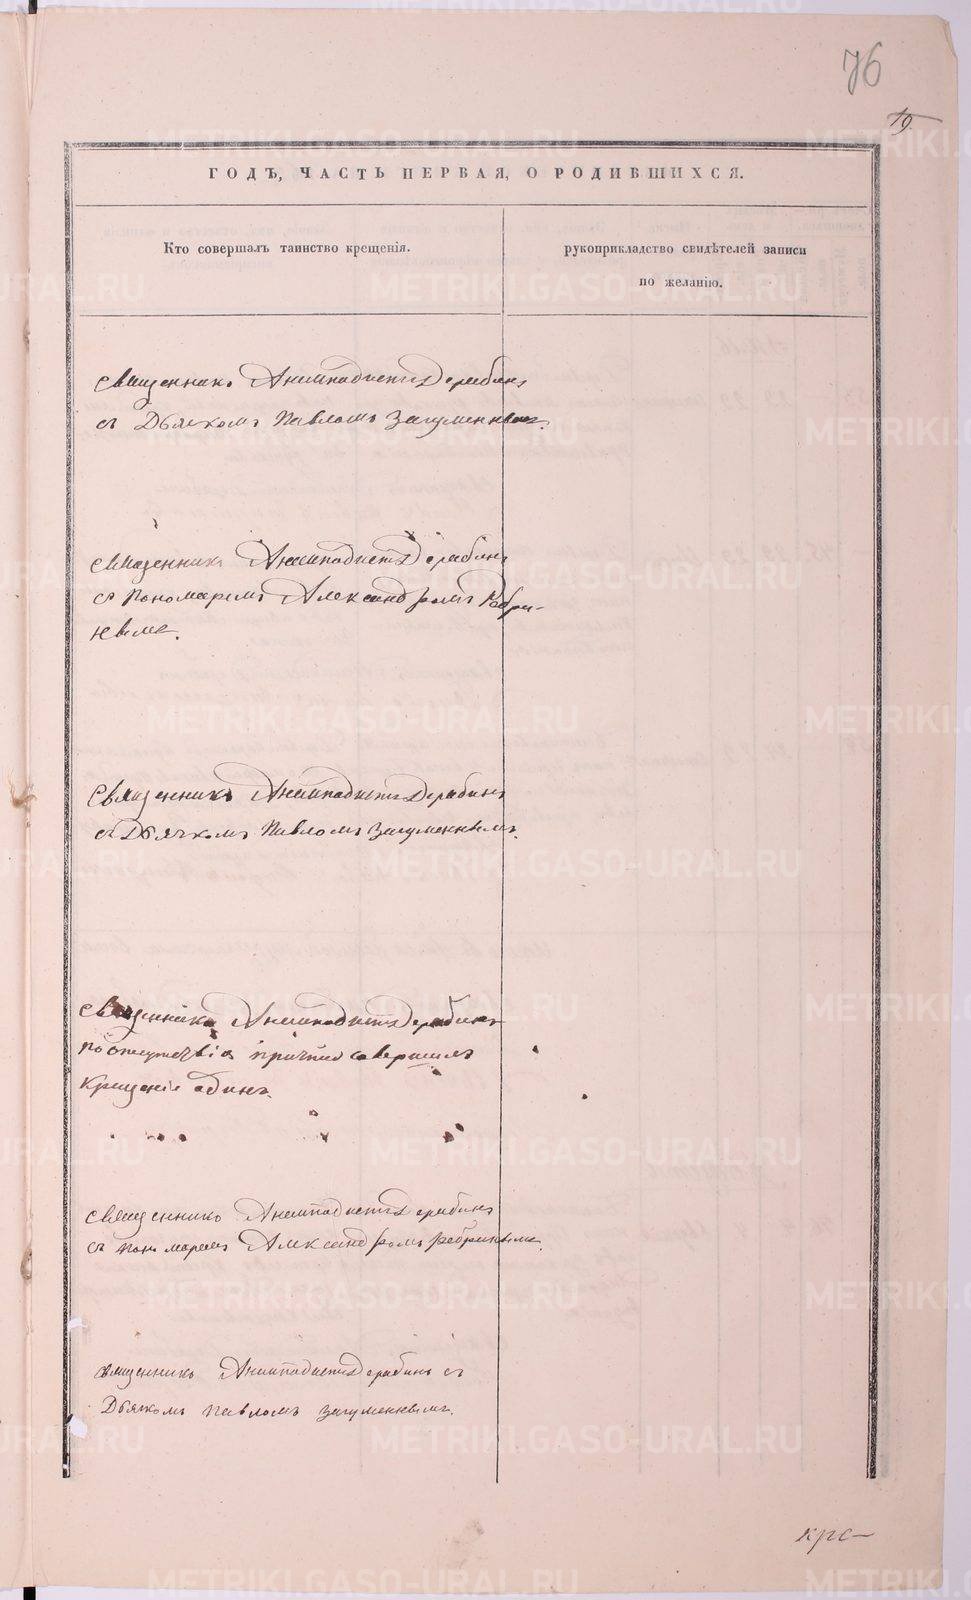 76
19.
ГОДЪ, ЧАСТЬ ПЕРВАЯ, О РОДИВШИХСЯ.
Кто совершалъ таинство крещенія.
рукоприкладство свидѣтелей записи
по желанію.
Священникъ Анемподистъ Дерябинъ
съ Дьячкомъ Павломъ Загуменнымъ.
Священникъ Анемподистъ Дерябинъ
съ Пономаремъ Александромъ Ребри-
нымъ.
Священникъ Анемподистъ Дерябинъ
съ Дьячкомъ Павломъ Загуменнымъ.
Священникъ Анемподистъ Дерябинъ
по отсутствію причта совершилъ
Крещеніе одинъ.
Священникъ Анемподистъ Дерябинъ
съ Пономаремъ Александромъ Ребринымъ.
Священникъ Анемподистъ Дерябинъ съ
Дьячкомъ Павломъ Загуменнымъ.
крс-
METRIKI.GASO-URAL.RU